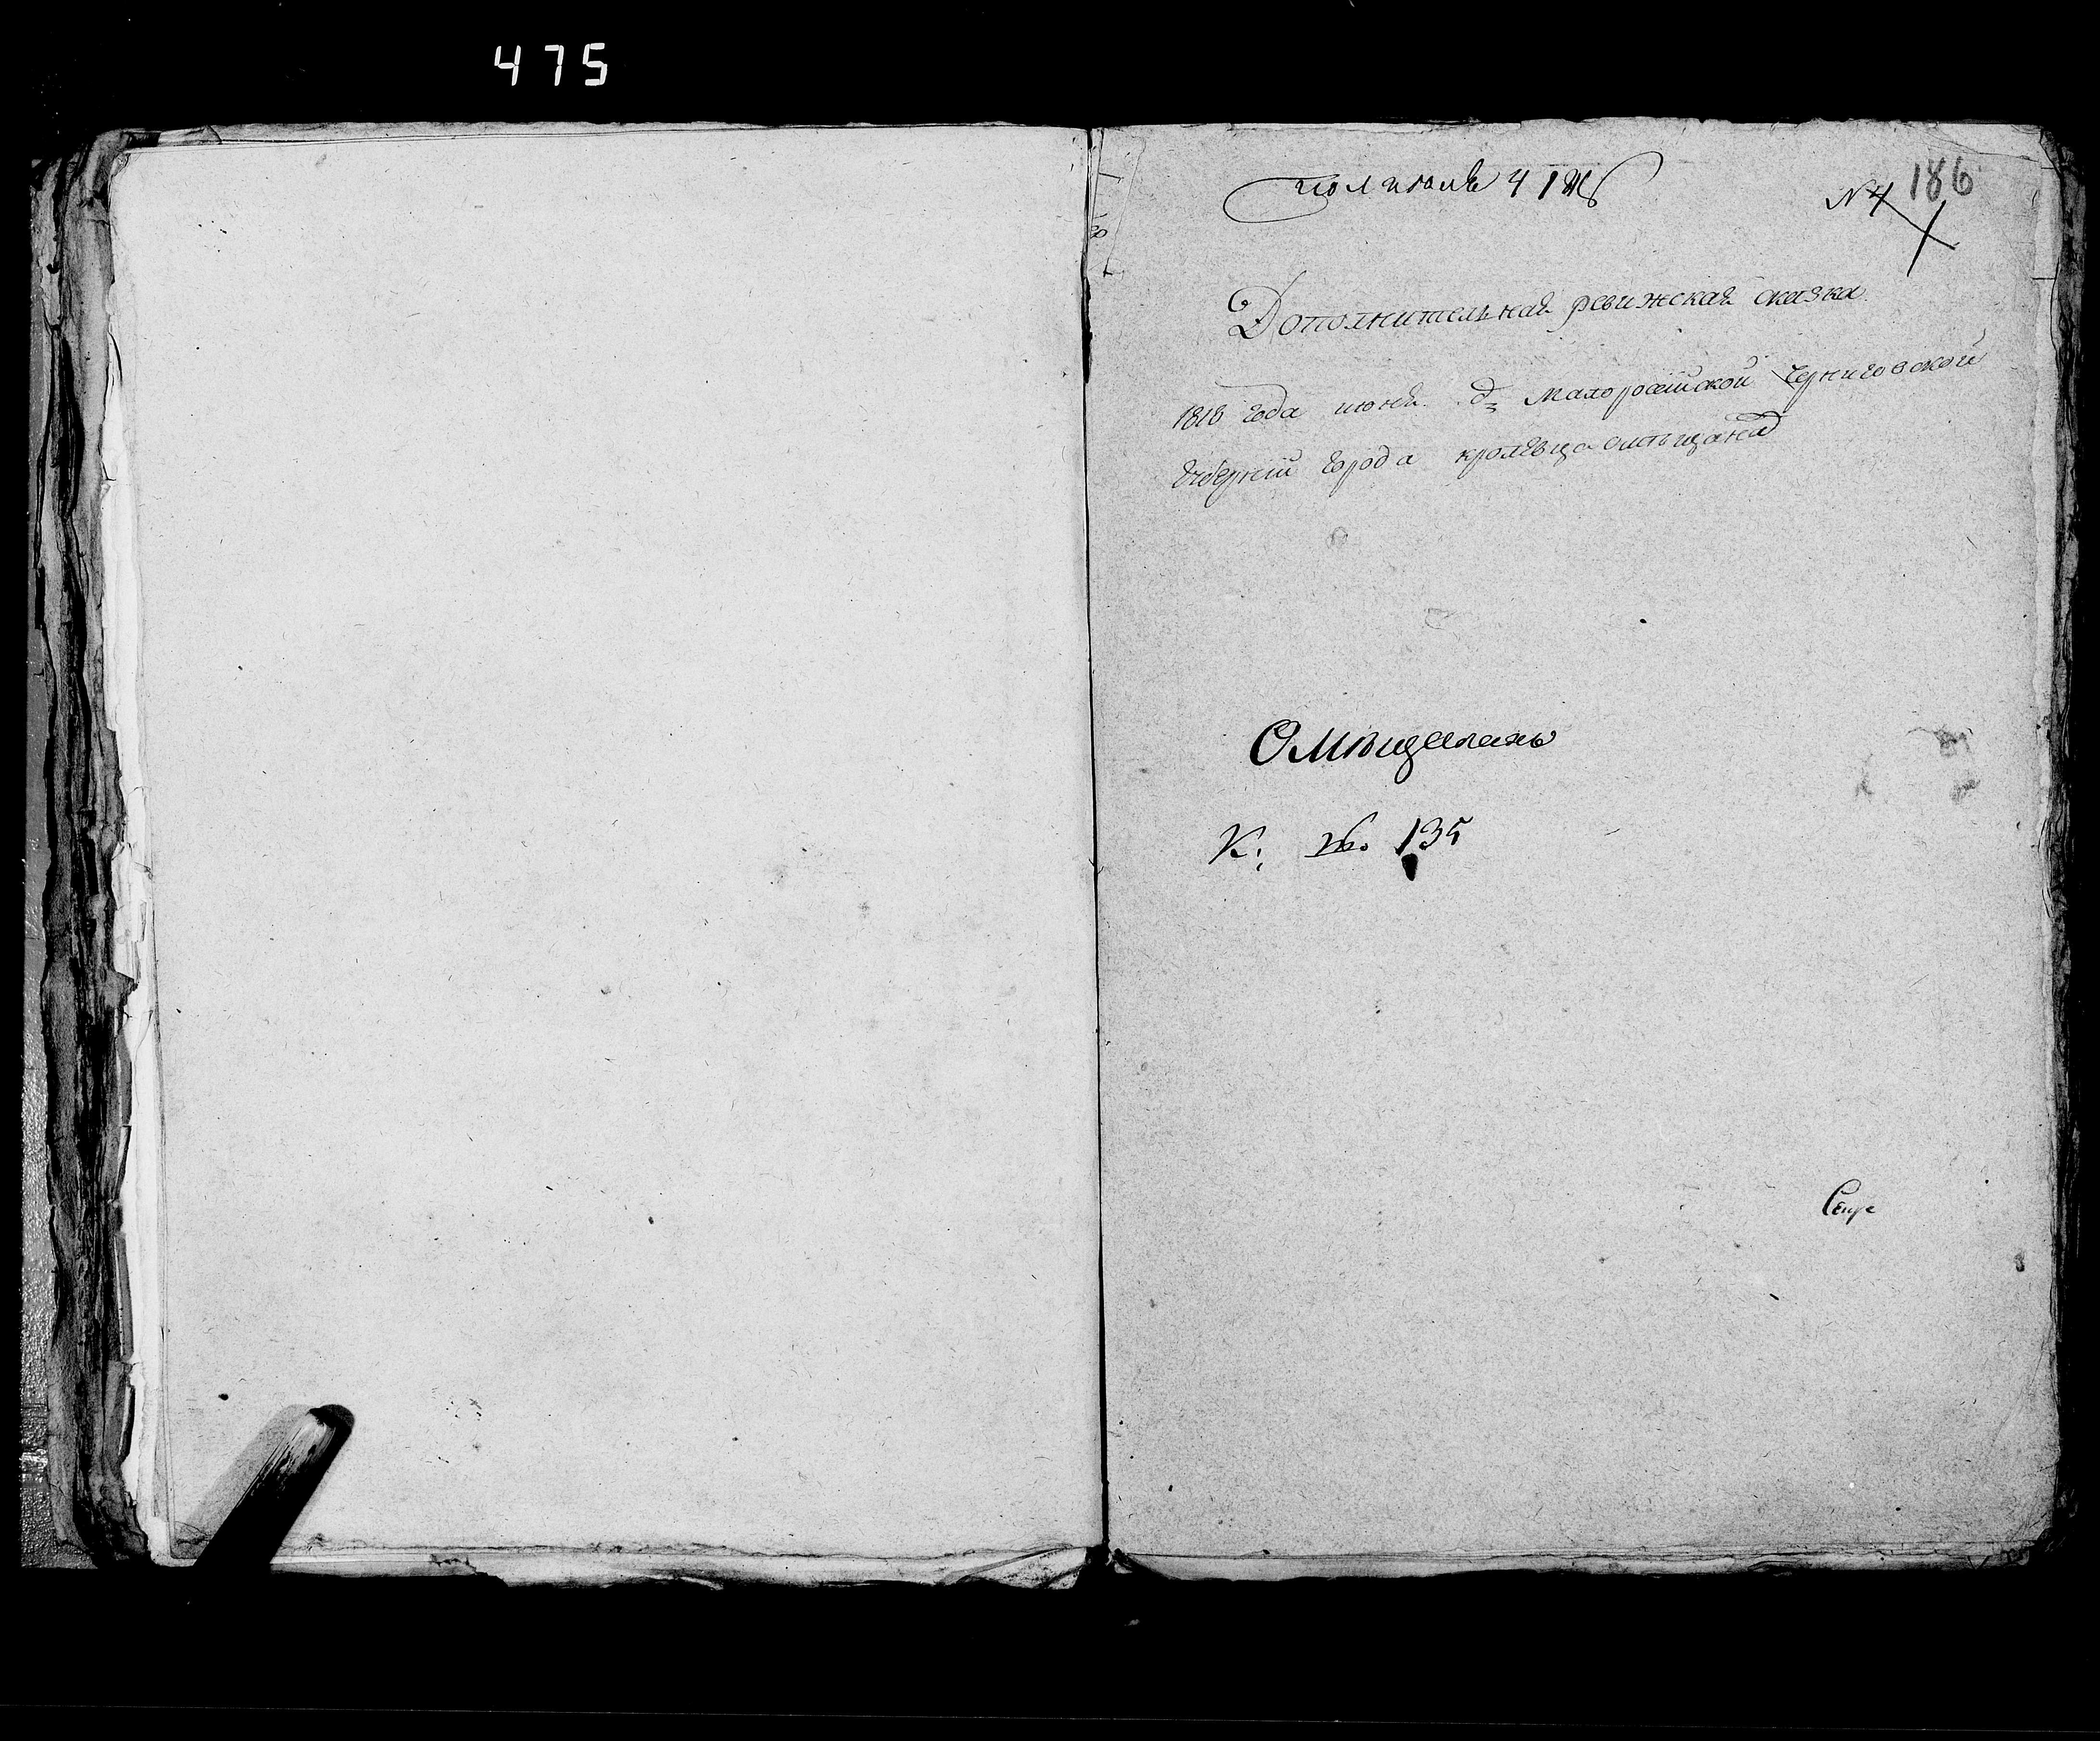 475
пол июля 4 1818
№ 4 186
Дополнительная ревижская сказка
1818 года июня д: Малороссійской Черниговской
Губерніи города кролевца
О Мѣщанахъ
К: № 135